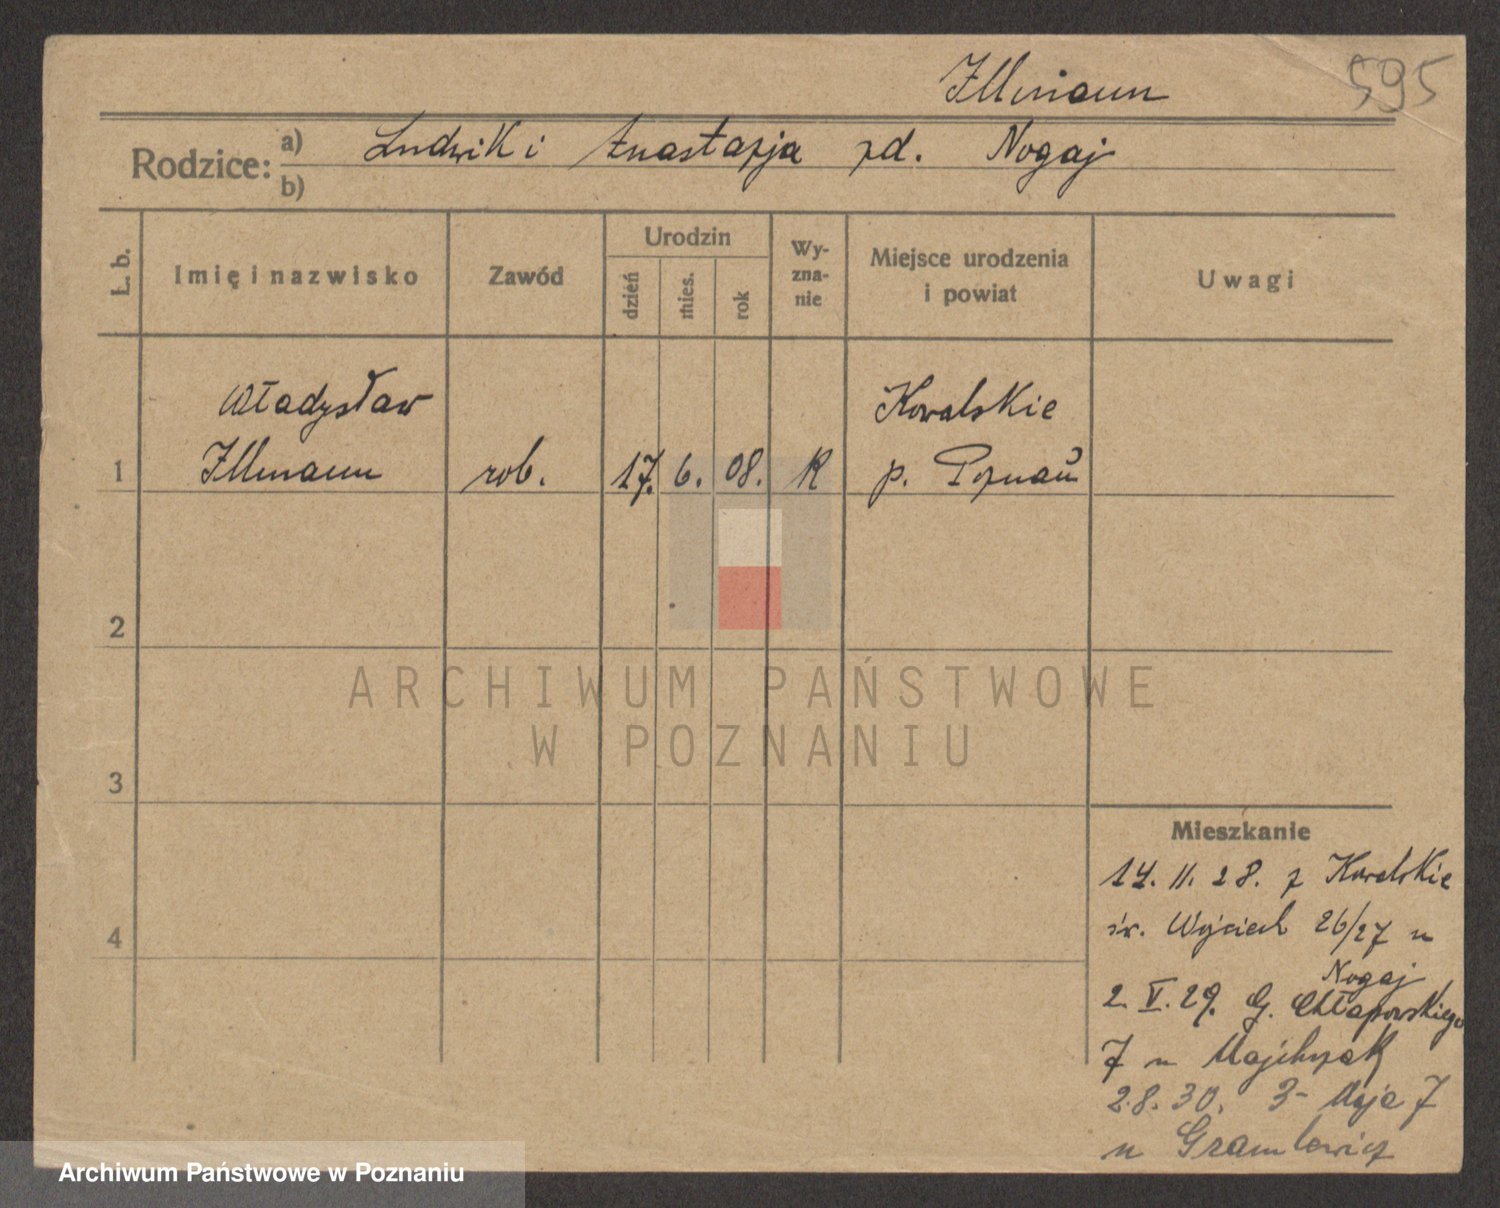 Illmann
595
Rodzice:
a) Ludwik i Anastazja zd. Nogaj
b)
Ł. b.
Imię i nazwisko
Zawód
Urodzin
dzień
mies.
rok
Wy-
zna-
nie
Miejsce urodzenia
i powiat
Uwagi
Władysław
Kowalskie
1 Illmann rob. 17. 6. 08. R p. Poznań
2
ARCHIWUM PAŃSTWOWE
W POZNANIU
3
Mieszkanie
4
14. 11. 28. z Kowalskie
św. Wojciech 26/27 u
Nogaj
2. V. 29. G. Chłapowskiego
7 u Majchrzak
2.8.30. 3- Maja 7
u
Archiwum Państwowe w Poznaniu